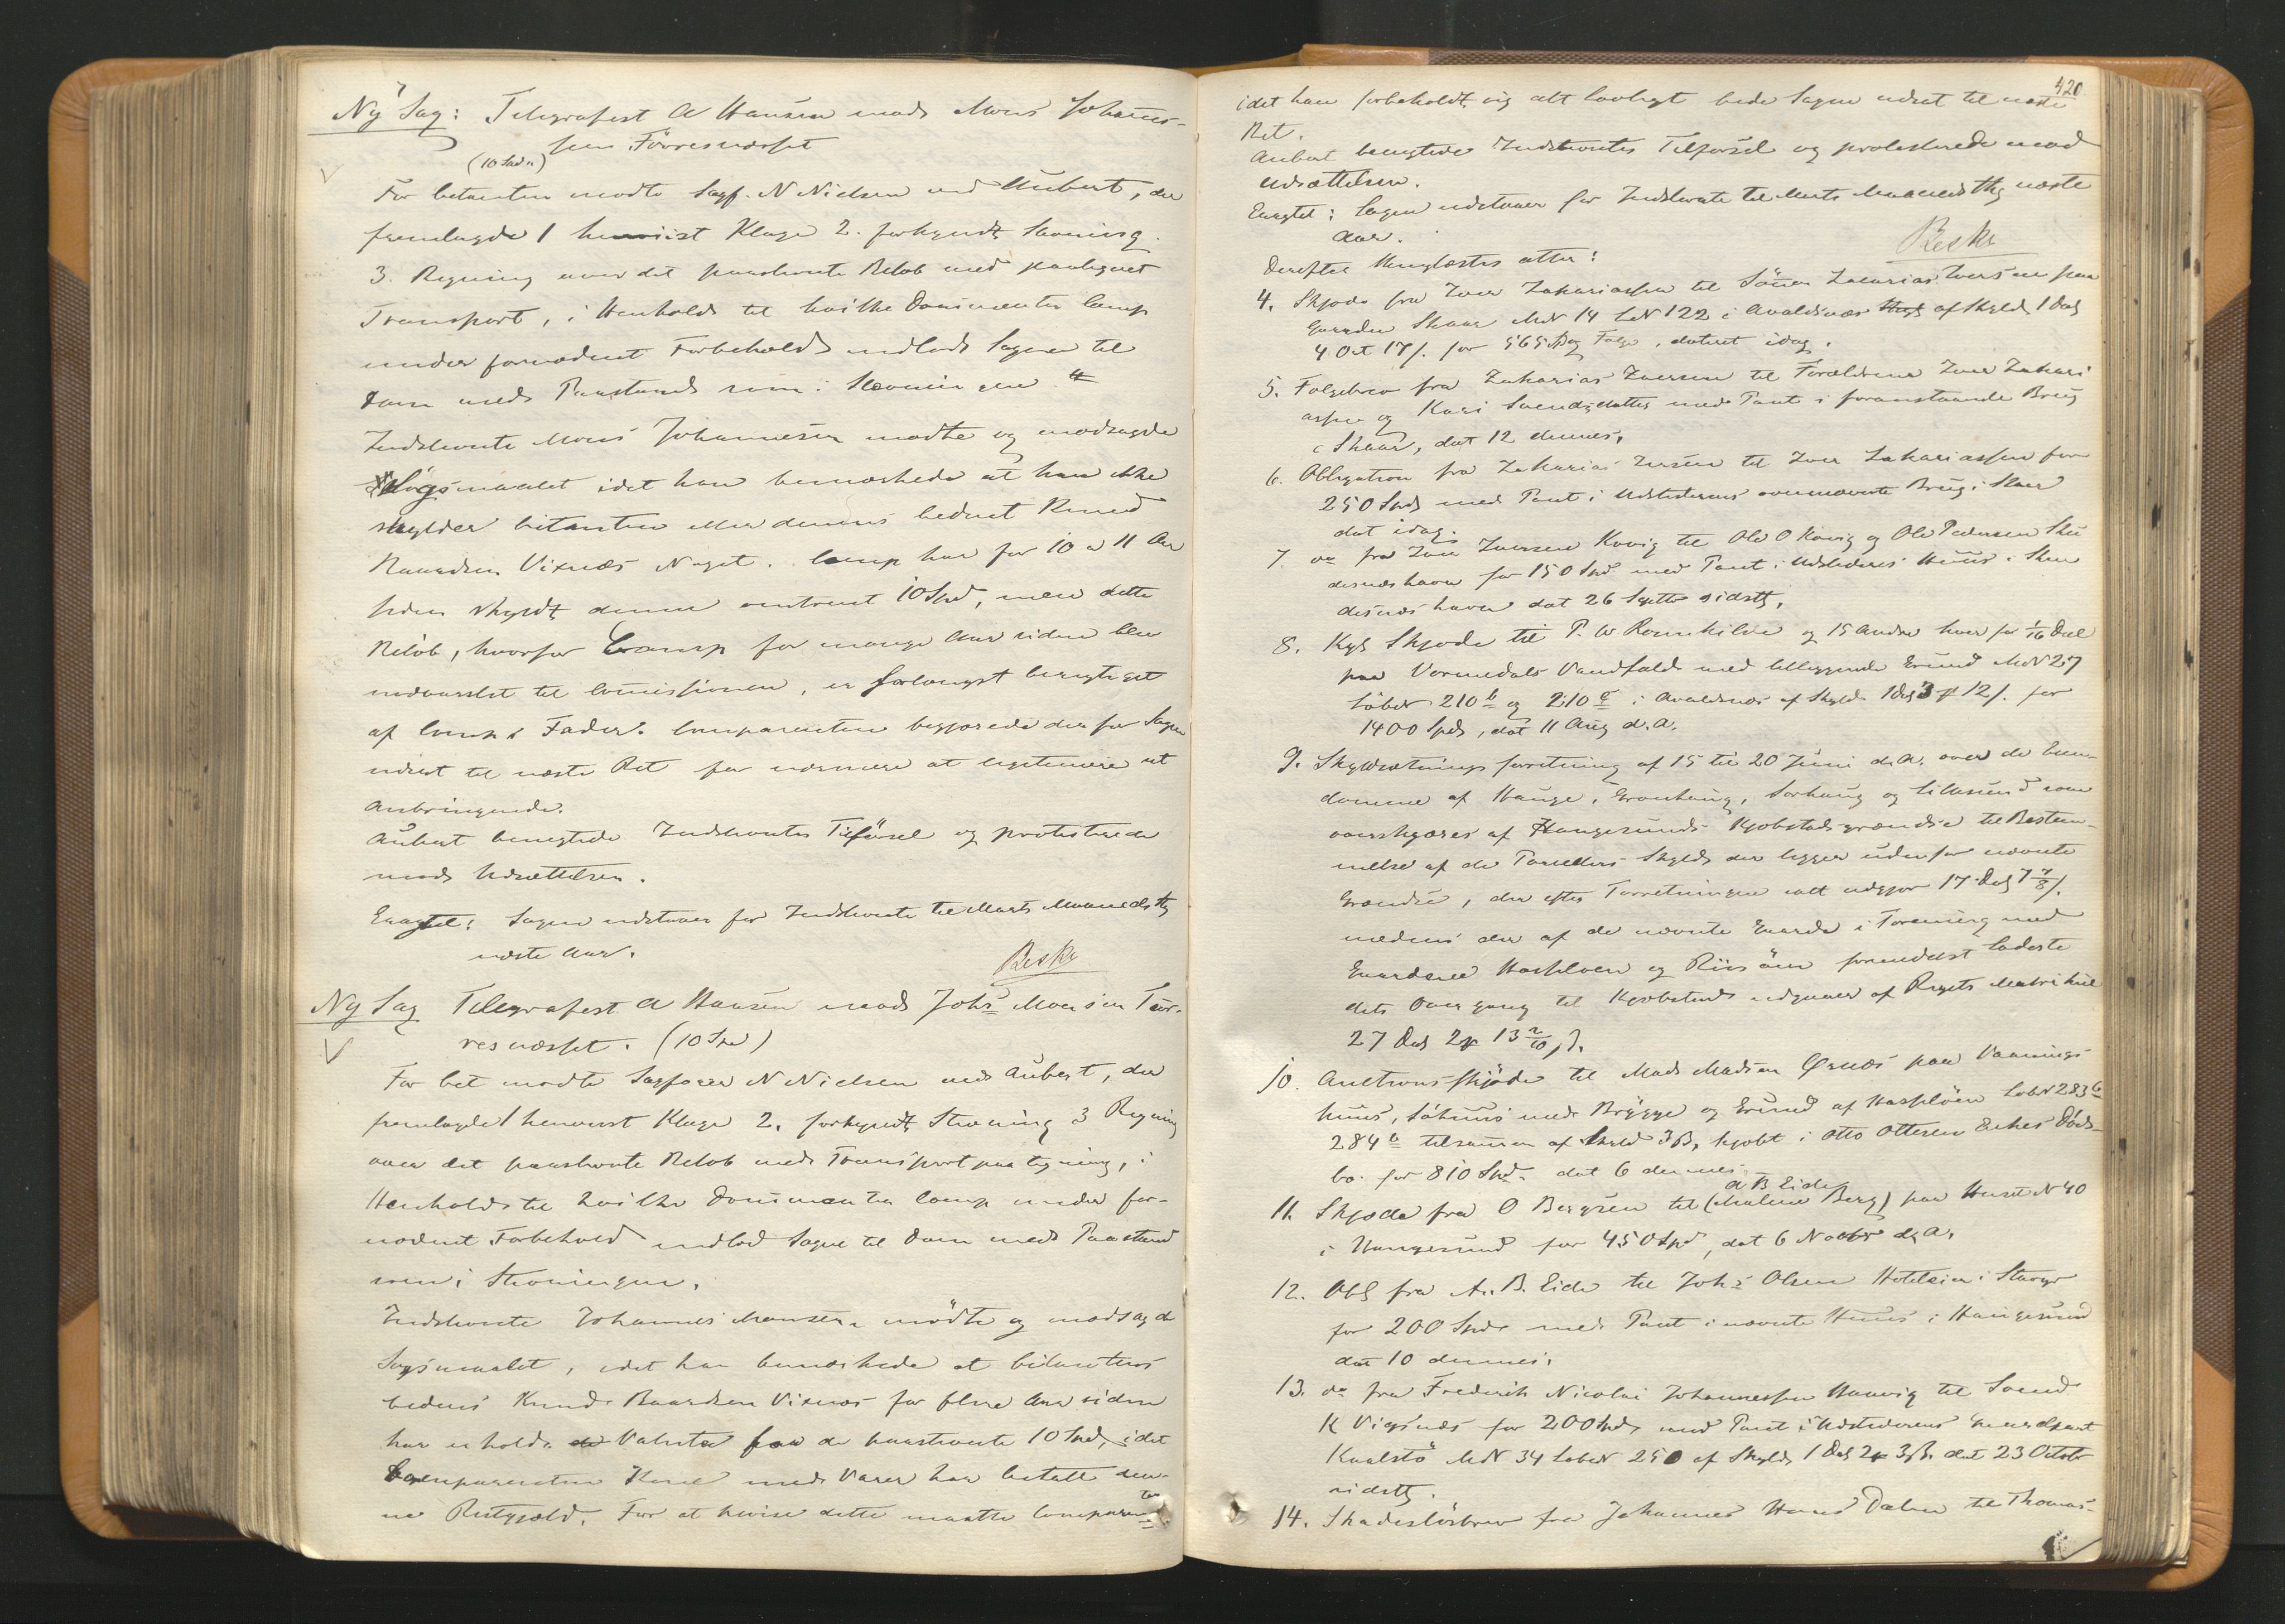 Ny Sag: Telegrafist A Hansen mod Mons Johannes-
senFörresnæsset
(10 Spd)
For Citanten mødte Sagf. N Nielsen ved Aubert, der
fremlagde 1 henviist Klage 2. forkyndt Stævning.
3. Regning over det paastævnte Beløb med paategnet
Transport, i Henhold til hvilke Documenter Comp
under fornødent Forbehold indlod Sagen til
Dom med Paastand som i Stævningen.
Indstevnte Mons Johannesen mødte og modsagde
Søgsmaalet idet han bemærkede at han ikke
skylder Citanten eller dennes Cedent Knud
Baardsen Vixnæs Noget. Comp har for 10 a 11 Aar
siden skyldt denne omtrent 10 Spd, men dette
Beløb, hvorfor Comp for mange Aar siden blev
indvarslet til Comissionen, er forlængst berigtiget
af Comps Fader. Comparenten begjærede derfor Sagen
udsat til næste Ret for nærmere at legitimere sit
Anbringende.
Aubert benegtede Indstevntes Tilførsel og protesterede
mod Udsættelsen.
Eragtet: Sagen udstaaer for Indstevnte til Marts Maanedsthg
næste Aar.
Reske
Ny Sag Telegrafist A Hansen mod Johs Monsen Før-
resnæsset. (10 Spd)
For Cit mødte Sagfører N Nielsen ved Aubert, der
fremlagde 1 henvist Klage 2. forkyndt Stævning 3 Regning
over det paastevnte Beløb med Transportpaategning, i
Henhold til hvilke Documenter Comp under for-
nødent Forbehold indlod Sagen til Dom med Paastand
som i Stævningen.
Indstevnte Johannes Monsen mødte og modsagde
Søgsmaalet, idet han bemærkede at Citantens
Cedent Knud Baardsen Vixnæs for flere Aar siden
har erholdt Valuta for de paastevnte 10 Spd, idet
Comparenten med Varer har betalt den-
ne Restgjæld. For at bevise dette maatte Comparenten
420
idet han forbeholdt sig alt lovligt bede Sagen udsat til næste
Ret.
Aubert benegtede Indstevntes Tilførsel og protesterede mod
Udsættelsen.
Eragtet: Sagen udstaaer for Indstevnte til Marts Maaneds thg næste
Aar.
Reske
Derefter thinglæstes atter:
4. Skjøde fra Iver Zakariassen til Sønen Zacarias Iversen paa
Gaarden Skaar MN 14 LN 122 i Avaldsnæs af Skyld 1 Dlr
4 Ort 17 ſ. for 565 Spd og Følge, dateret idag.
5. Følgebrev fra Zakarias Iversen til Forældrene Iver Zakari
assen og Kari Svendsdatter med Pant i foranstaaende Brug
i Skaar, dat 12 dennes.
6. Obligation fra Zakarias Iversen til Iver Zakariassen for
250 Spd med Pant i Udstederens ovennævnte Brug i Skaar
dat idag.
7. do fra Iver Iversen Kovig til Ole O Kovig og Ole Pedersen Sku
desnæshavn for 150 Spd med Pant i Udstederens Huus i Sku
desnæshavn dat 26 Septbr sidstl.
8. Kgl Skjøde til P. W Rosenkilde og 15 Andre hver for 1/16 Deel
paa Vormedals Vandfald med tilliggende Grund MN 27
Løbe N 210 b og 210 c i Avaldsnæs af Skyld 1 Dlr 3 # 12 ſ. for
1400 Spd, dat 11 Aug d. A.
9. Skyldsætningsforretning af 15 til 20 Juni d. A. over de Eien-
domme af Hauge, Gronhaug, Sørhaug og Lillesund som
overskjæres af Haugesunds Kjøbstadsgrændse til Bestem-
melse af de Parcellers Skyld der ligger udenfor nævnte
Grændse, der efter Forretningen ialt udgjør 17 Dlr 7 7/8 ſ.
medens der af de nævnte Gaarde i Forening med
Gaardene Hasseløen og Risøen formedelst Ladeste
dets Overgang til Kjøbstad udgaaer af Rigets Matrikul
27 Dlr 2 # 13 2/10 ſ.
10. Auctionsskjøde til Mads Madsen Qvnæs paa Vaanings
huus, Søhuus med Brygge og Grund af Hasseløen Løbe N 283 b
284 b tilsammen af Skyld 3 ß, kjøbt i Otto Ottesen Eikes Døds-
bo for 810 Spd dat 6 dennes
A B Eide
11. Skjøde fra O Bergsen til (Malene Berg) paa Huset N 40
i Haugesund for 450 Spd, dat 6 Novbr d. A.
12. Obl fra A. B. Eide til Johs Olsen Hotelleier i Stavgr
for 200 Spd med Pant i nævnte Huus i Haugesund
dat 10 dennes.
13. do fra Frederik Nicolai Johannessen Haavig til Svend
K Vigsnæs for 200 Spd med Pant i Udstederens Gaardpart
Kvalstø MN 34 Løbe N 250 af Skyld 1 Dlr 2 # 3 ß. dat 23 Octobr
sidstl.
14. Skadesløsbrev fra Johannes Hans Dalen til Thomas